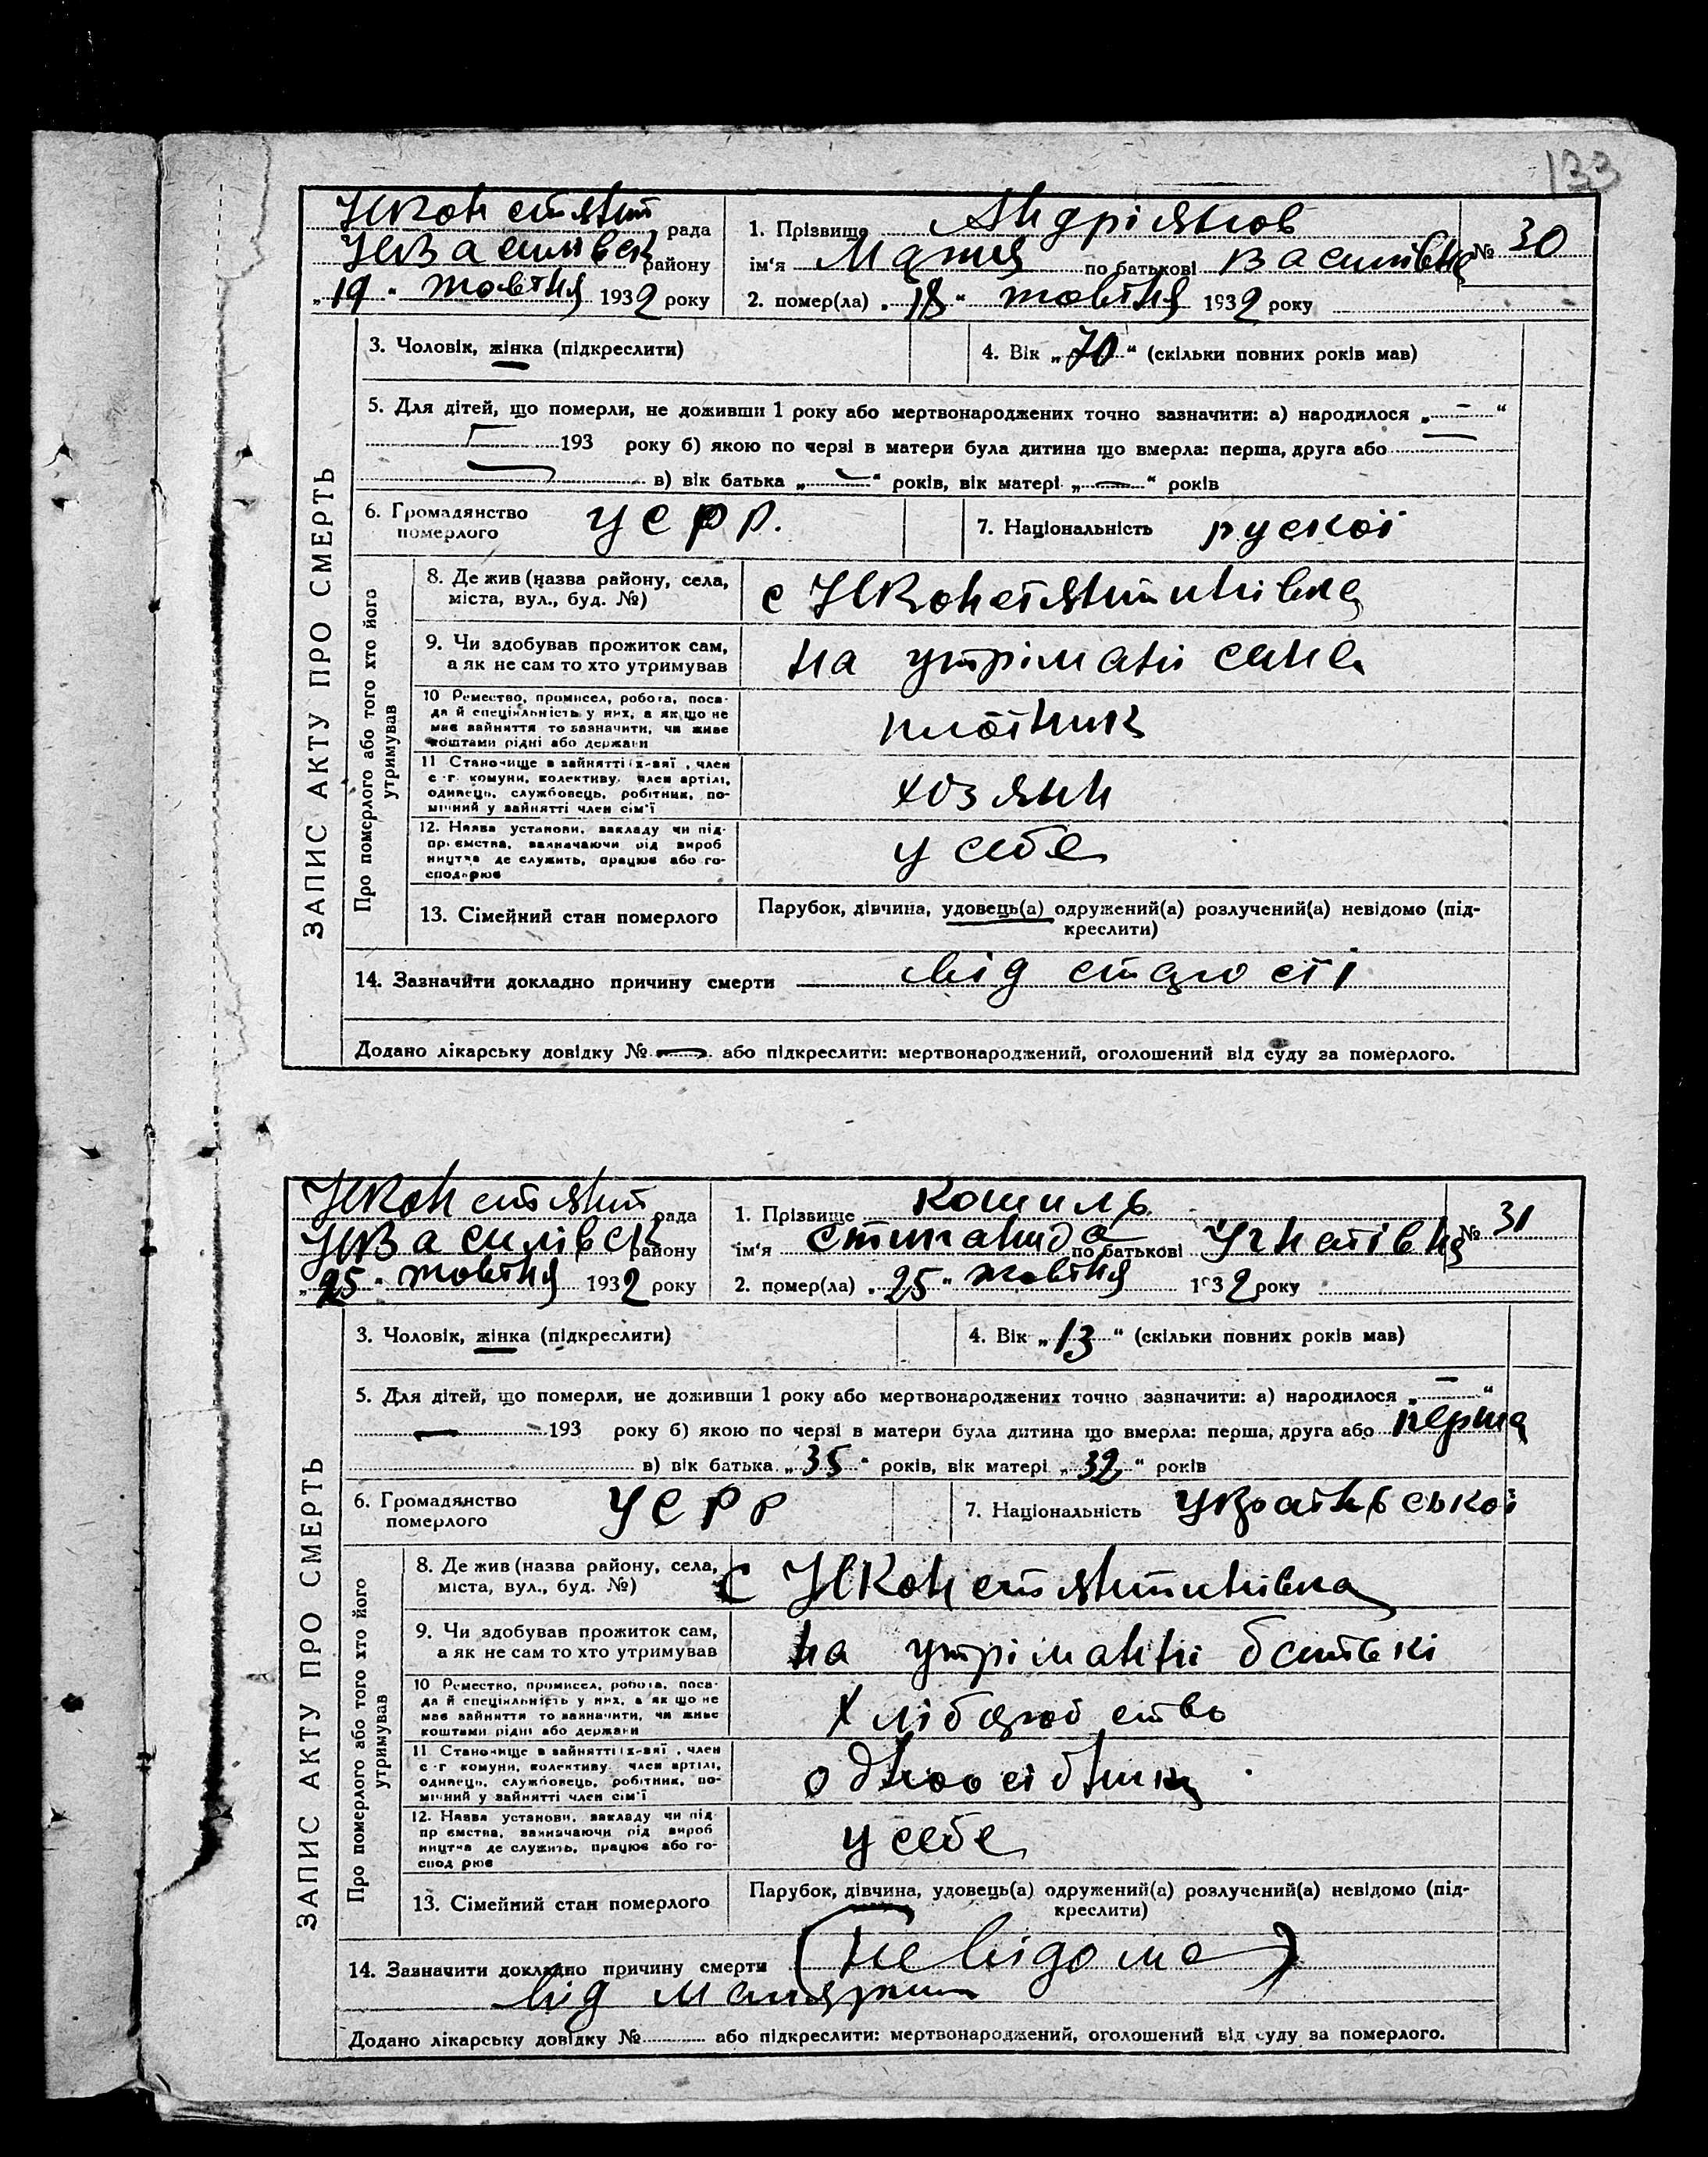 133
НКонстянт рада
НВасилівськ району
„19“ жовтня 1932 року
1. Прізвище Андріянов
ім'я Марія по батькові Василівна № 30
2. помер(ла) „18“ жовтня 1932 року
3. Чоловік, жінка (підкреслити)
4. Вік „70“ (скільки повних років мав)
5. Для дітей, що померли, не доживши 1 року або мертвонароджених точно зазначити: а) народилося „—“
193 року б) якою по черзі в матери була дитина що вмерла: перша, друга або
в) вік батька „—“ років, вік матері „—“ років
6. Громадянство померлого УСРР.
7. Національність руской
ЗАПИС АКТУ ПРО СМЕРТЬ
Про померлого або того хто його утримував
8. Де жив (назва району, села,
міста, вул., буд. №)
с НКонстянтинівка
9. Чи здобував прожиток сам,
а як не сам то хто утримував
на утрімані сина
10 Ремество, промисел, робота, поса-
да й спеціяльність у них, а якщо не
має зайняття то зазначити, чи живе
коштами рідні або держави
плотник
11 Становище в зайнятті (х-зяї , член
с-г. комуни, колективу, член артілі,
одинець, службовець, робітник, по-
мічний у зайнятті член сім'ї
хозяин
12. Назва установи, закладу чи під-
приємства, зазначаючи рід вироб
ництва де служить, працює або го-
сподарює
у себе
13. Сімейний стан померлого
Парубок, дівчина, удовець(а) одружений(а) розлучений(а) невідомо (під-
креслити)
14. Зазначити докладно причину смерти від старості
Додано лікарську довідку № — або підкреслити: мертвонароджений, оголошений від суду за померлого.
НКонстянт рада
НВасилівськ району
„25“ жовтня 1932 року
1. Прізвище Кошиль
ім'я Степанида по батькові Ігнатівна № 31
2. помер(ла) „25“ жовтня 1932 року
3. Чоловік, жінка (підкреслити)
4. Вік „13“ (скільки повних років мав)
5. Для дітей, що померли, не доживши 1 року або мертвонароджених точно зазначити: а) народилося „—“
— 193 року б) якою по черзі в матери була дитина що вмерла: перша, друга або перша
в) вік батька „35“ років, вік матері „32“ років
6. Громадянство померлого УСРР
7. Національність Української
ЗАПИС АКТУ ПРО СМЕРТЬ
Про померлого або того хто його утримував
8. Де жив (назва району, села,
міста, вул., буд. №)
с НКонстянтинівка
9. Чи здобував прожиток сам,
а як не сам то хто утримував
на утріманні батькі
10 Ремество, промисел, робота, поса-
да й спеціяльність у них, а як що не
має зайняття то зазначити, чи живе
коштами рідні або держави
Хліборобство
11 Становище в зайнятті (х-зяї , член
с-г комуни, колективу, член артілі,
одинець, службовець, робітник, по-
мічний у зайнятті член сім'ї
одноосібник
12. Назва установи, закладу чи під
приємства, зазначаючи рід вироб
ництва де служить, працює або го-
сподарює
у себе
13. Сімейний стан померлого
Парубок, дівчина, удовець(а) одружений(а) розлучений(а) невідомо (під-
креслити)
14. Зазначити докладно причину смерти (невідома)
від малярии
Додано лікарську довідку № або підкреслити: мертвонароджений, оголошений від суду за померлого.